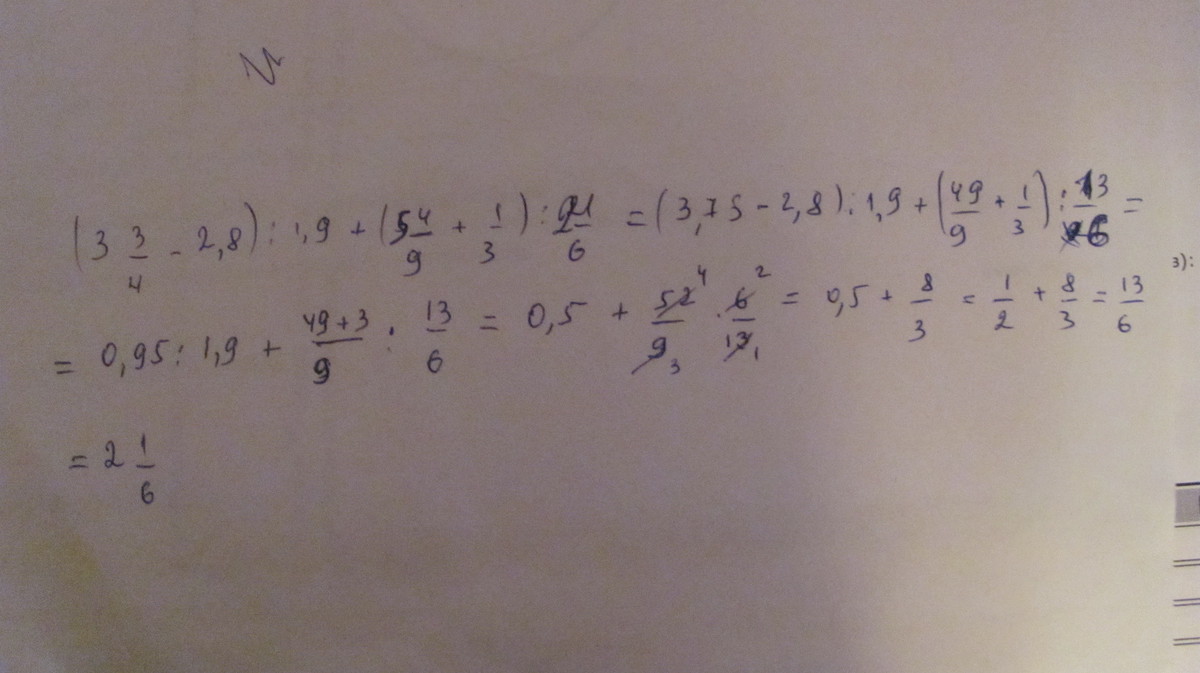 (3 3/4 - 2,8) : 1,9 + (5 4/9 + 1/3) : 2 1/6 = (3,75 - 2,8) : 1,9 + (49/9 + 1/3) : 13/6 =
з):
= 0,95 : 1,9 + (49+3)/9 : 13/6 = 0,5 + 52⁴/9₃ · 6²/13₁ = 0,5 + 8/3 = 1/2 + 8/3 = 13/6
= 2 1/6